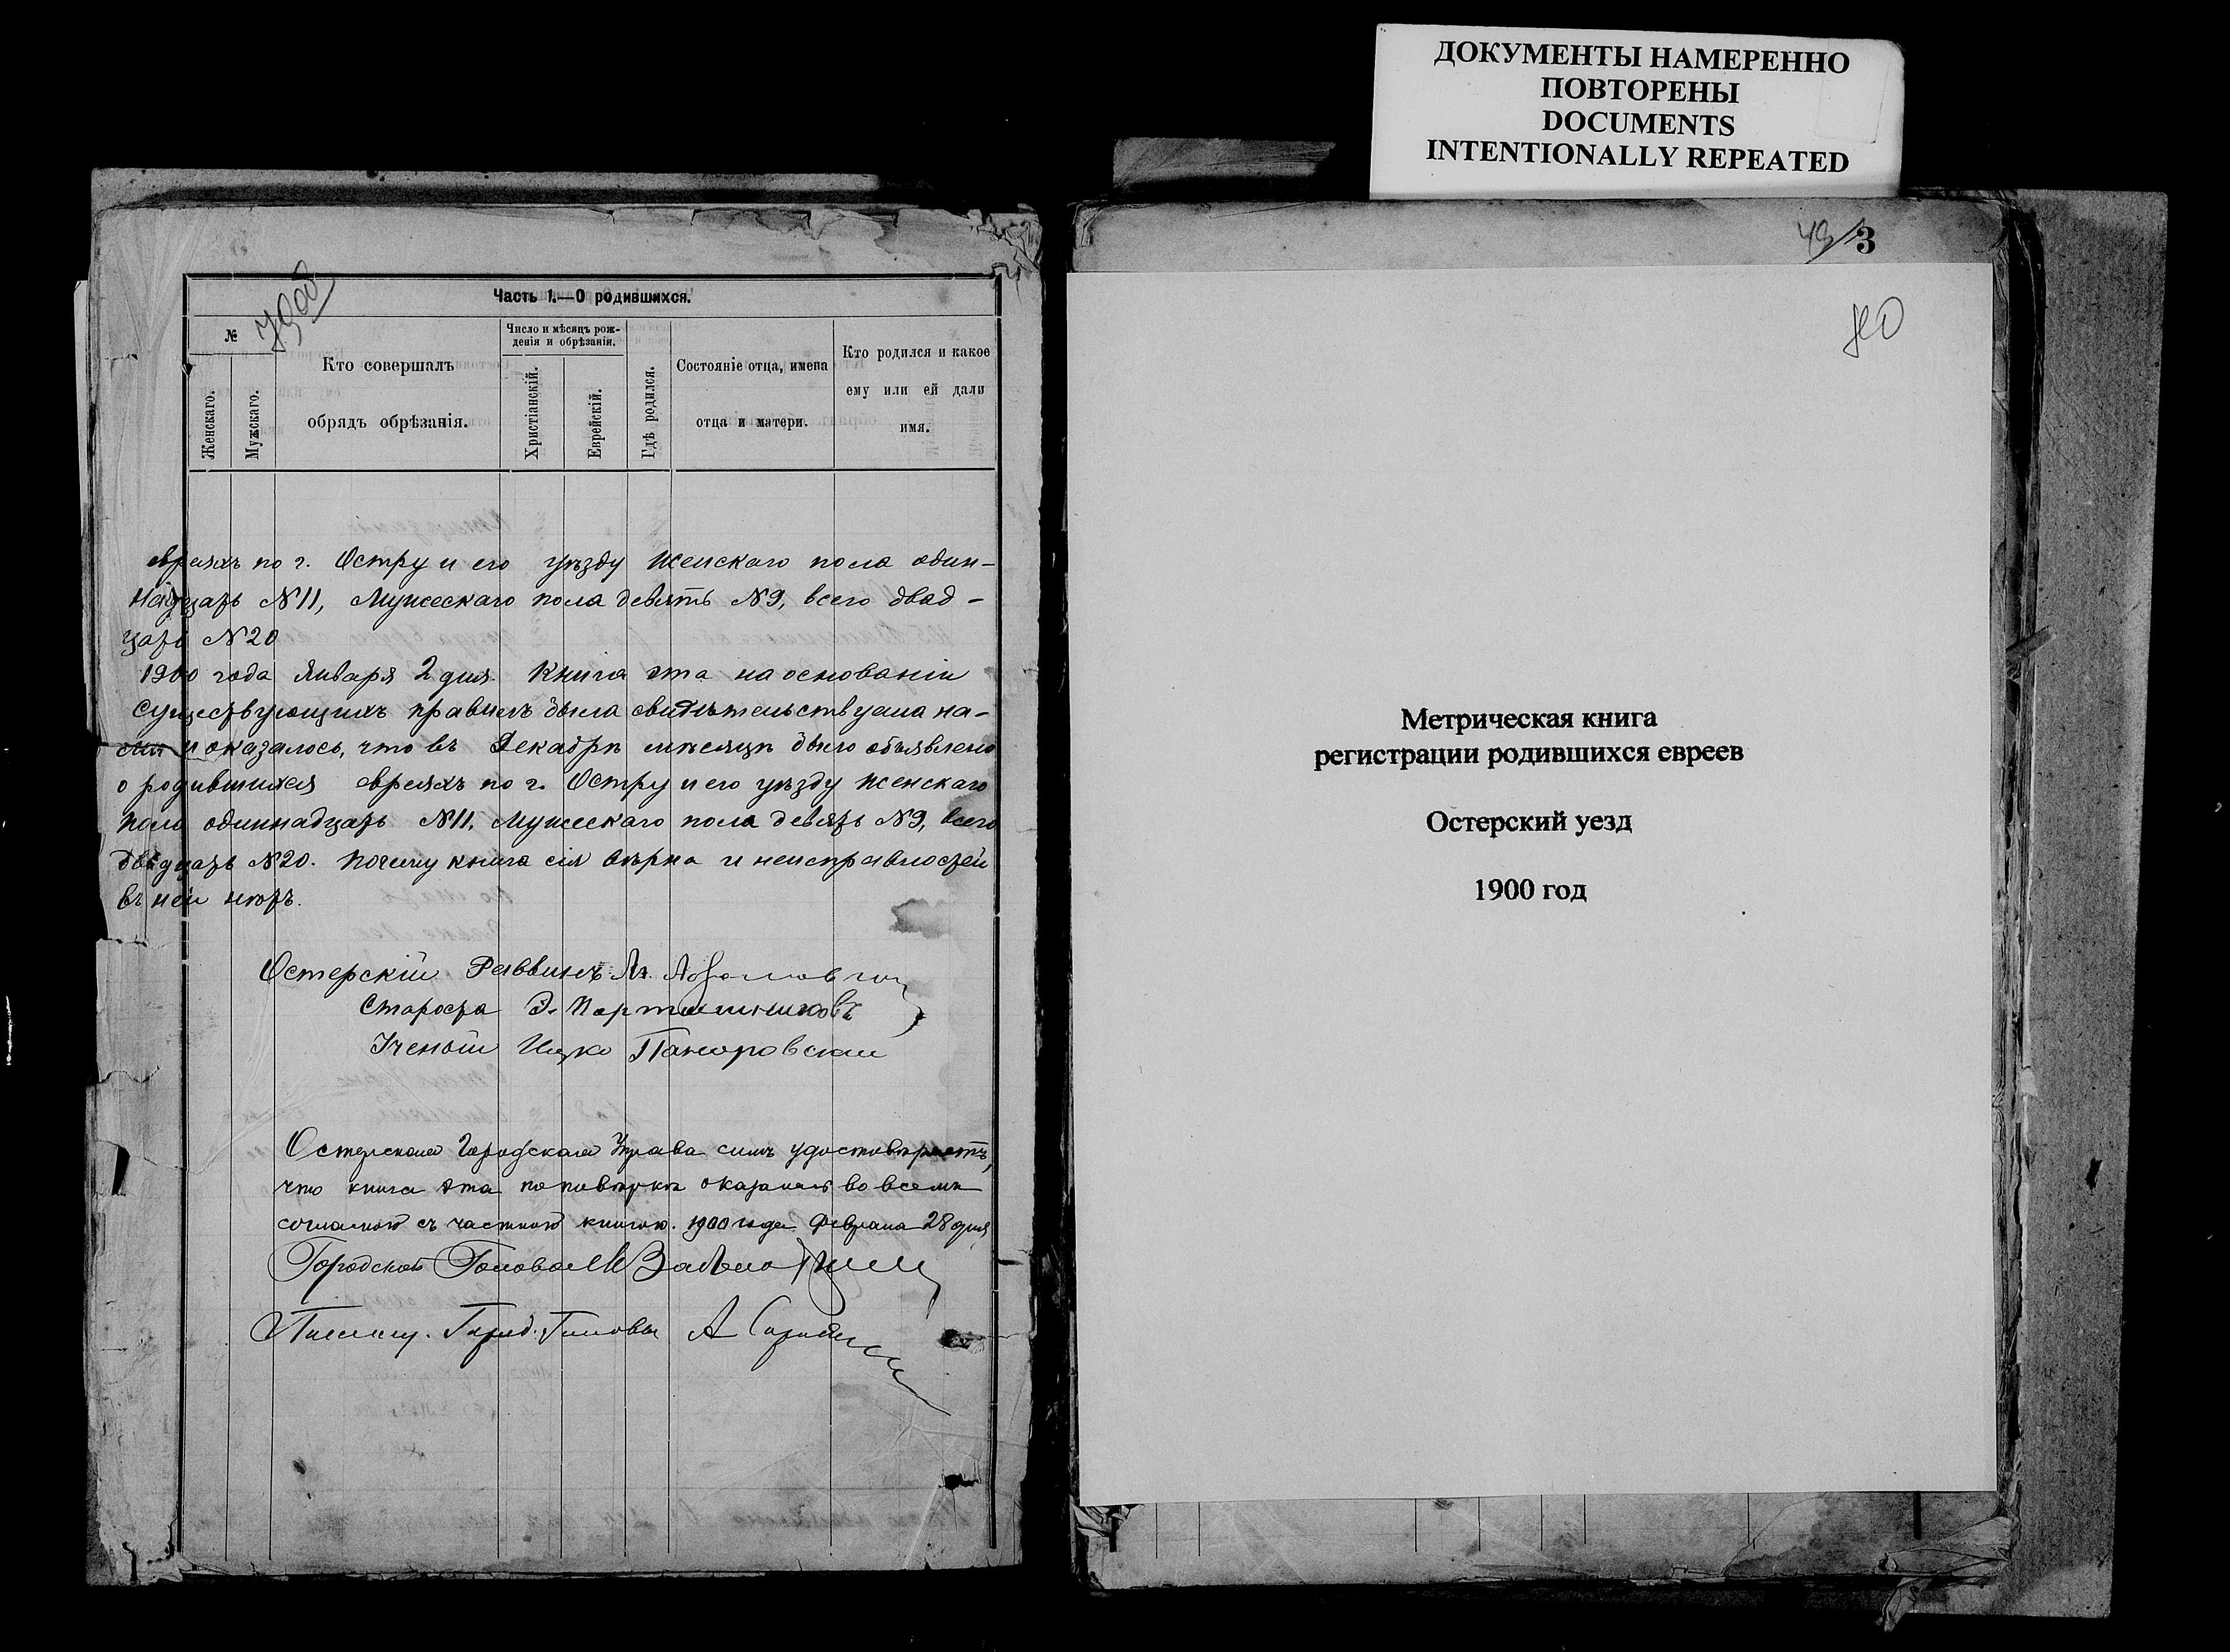 ДОКУМЕНТЫ НАМЕРЕННО
ПОВТОРЕНЫ
DOCUMENTS
INTENTIONALLY REPEATED
Часть 1.—О родившихся.
№
Женскаго.
Мужскаго.
Кто совершалъ
обрядъ обрѣзанія.
Число и мѣсяцъ рож-
денія и обрѣзанія.
Христіанскій.
Еврейскій.
Гдѣ родился.
Состояніе отца, имена
отца и матери.
Кто родился и какое
ему или ей дали
имя.
евреяхъ по г. Остру и его уѣзду женскаго пола один-
надцать №11, Мужескаго пола девять №9, всего двад-
цать №20
1900 года Января 2 дня. Книга эта на основаніи
существующихъ правилъ была свидѣтельствуема на-
ми и оказалось, что въ Декабрѣ мѣсяцѣ было объявлено
о родившихся евреяхъ по г. Остру и его уѣзду женскаго
пола одиннадцать №11, Мужескаго пола девять №9, всего
двадцать №20. Почему книга сія вѣрна и неисправностей
въ ней нѣтъ.
Остерскій Раввинъ
Староста Э. Порташниковъ
Ученый Ицко
Остерская Городская Управа симъ удостовѣряетъ,
что книга эта по повѣркѣ оказалась во всемъ
согласною съ частною книгою. 1900 года Февраля 28 дня
Городской Голова
Город. Головы А
3
Метрическая книга
регистрации родившихся евреев
Остерский уезд
1900 год